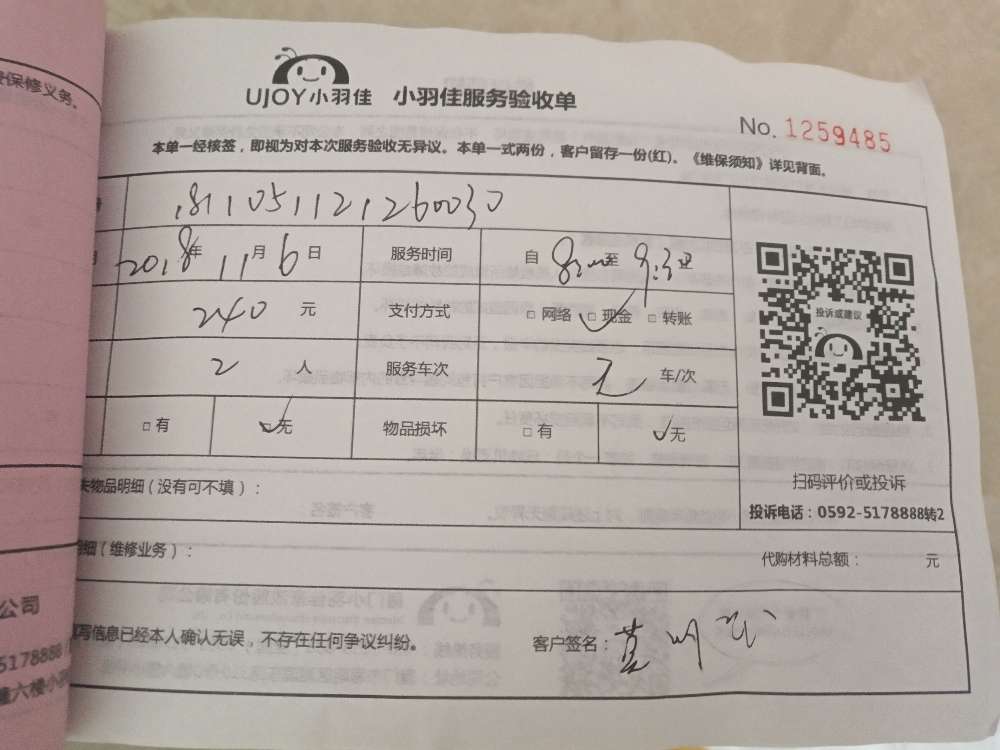 保修义务。
UJOY小羽佳 小羽佳服务验收单
No. 1259485
本单一经核签，即视为对本次服务验收无异议。本单一式两份，客户留存一份(红)。《维保须知》详见背面。
1811051121260030
2018年11月6日 服务时间 自 至
240 元 支付方式 □ 网络 □ 现金 □ 转账
投诉或建议
2 人 服务车次 车/次
□ 有 □ 无 物品损坏 □ 有 □ 无
物品明细（没有可不填）：
扫码评价或投诉
投诉电话：0592-5178888转2
细（维修业务）：
代购材料总额： 元
公司
写信息已经本人确认无误，不存在任何争议纠纷。 客户签名：
5178888
六楼小